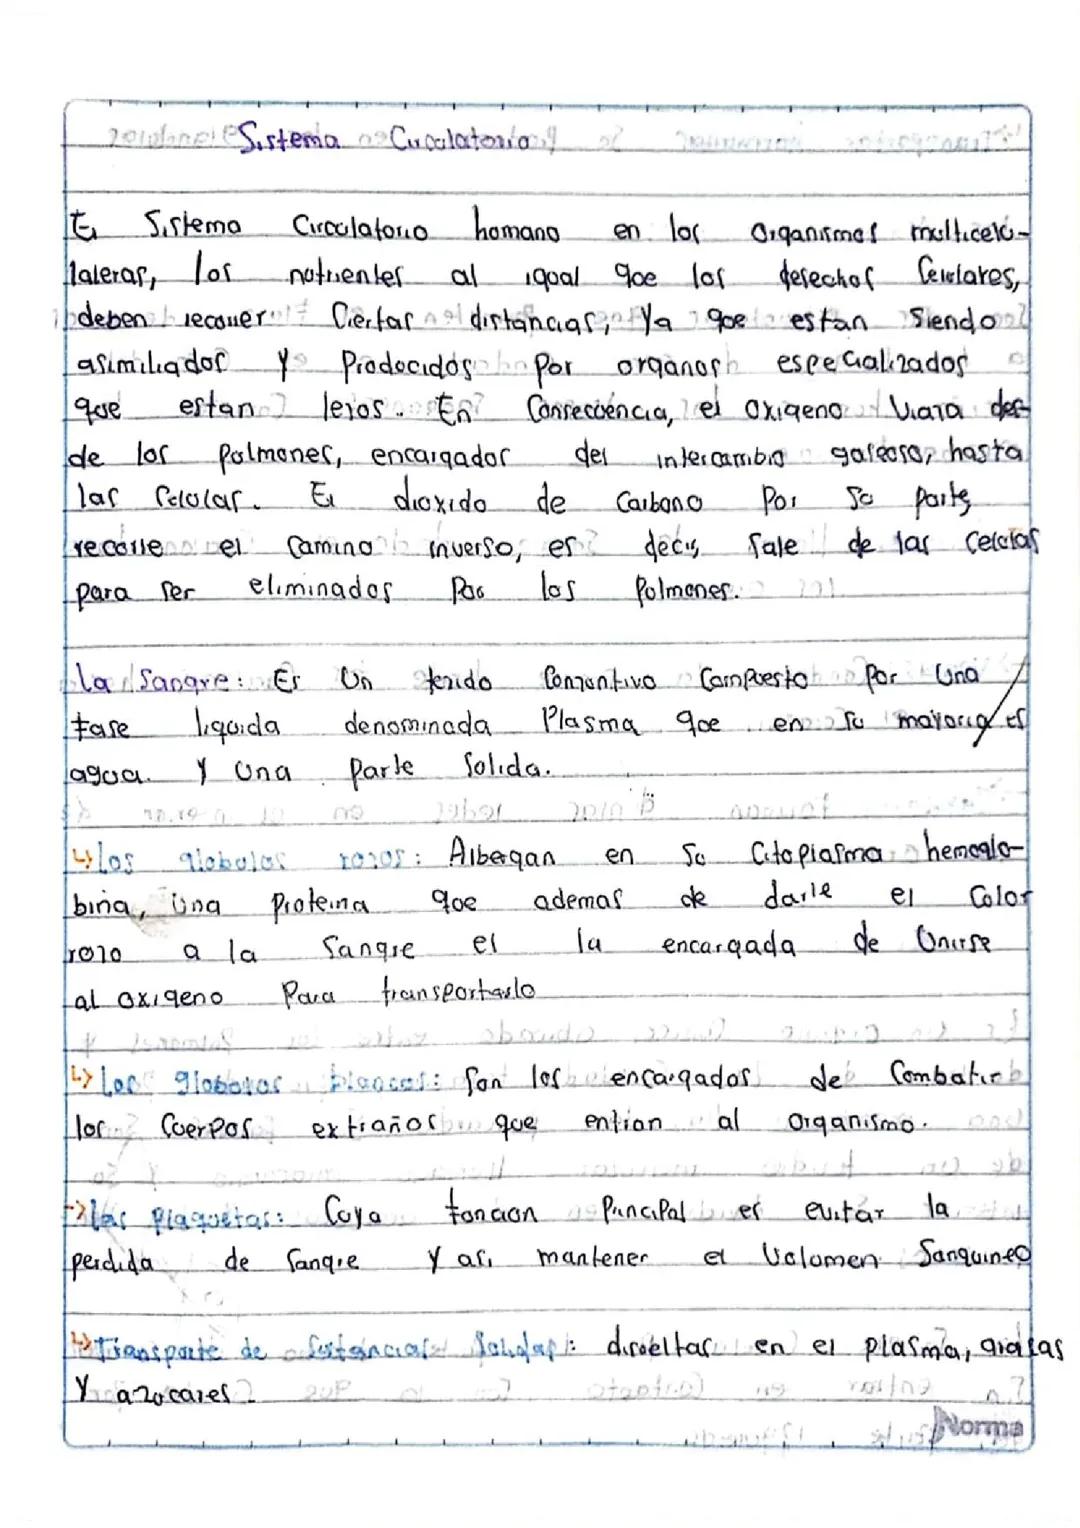 Sistema Circulatorio
El Sistema Circulatorio homano en los Organismos multicelu-
laleras, los nutrientes al igual que los desechos Celulares,
deben recorrer Ciertas distancias, Ya que estan Siendo
asimiliados Y Producidos Por organos especializados
que estan lejos. En Consecuencia, el oxigeno Viaja des-
de los pulmones, encargados del intercambio gaseoso, hasta
las Celulas. El dioxido de Carbono Por Su parte
recorre el Camino inverso, es decir, Sale de las Celulas
para Ser eliminados Por los Pulmones.
La Sangre: Es Un tejido Conjuntivo Compuesto Por Una
fase liquida denominada Plasma que en Su mayoria es
agua. Y Una Parte Solida.
↳ Los globulos rojos: Albergan en Su Citoplasma hemoglo-
bina, Una Proteina que ademas de darle el Color
rojo a la Sangre es la encargada de Unirse
al oxigeno Para transportarlo
↳ Los globulos blancos: Son los encargados de Combatir
los Cuerpos extraños que entran al Organismo.
→ las Plaquetas: Cuya funcion Principal es evitar la
perdida de Sangre Y asi mantener el Volumen Sanguineo
↳ Transporte de Sustancias Solidas: disueltas en el plasma, grasas
Y azucares.
Norma